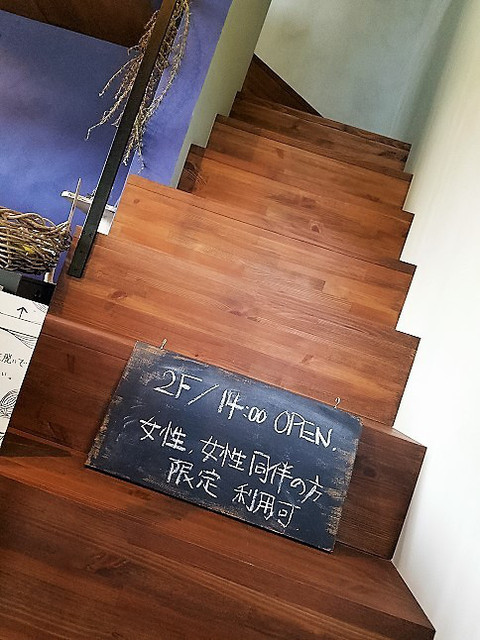 2F/14:00 OPEN.
女性、女性同伴の方
限定 利用可
↑
脱いで
い。